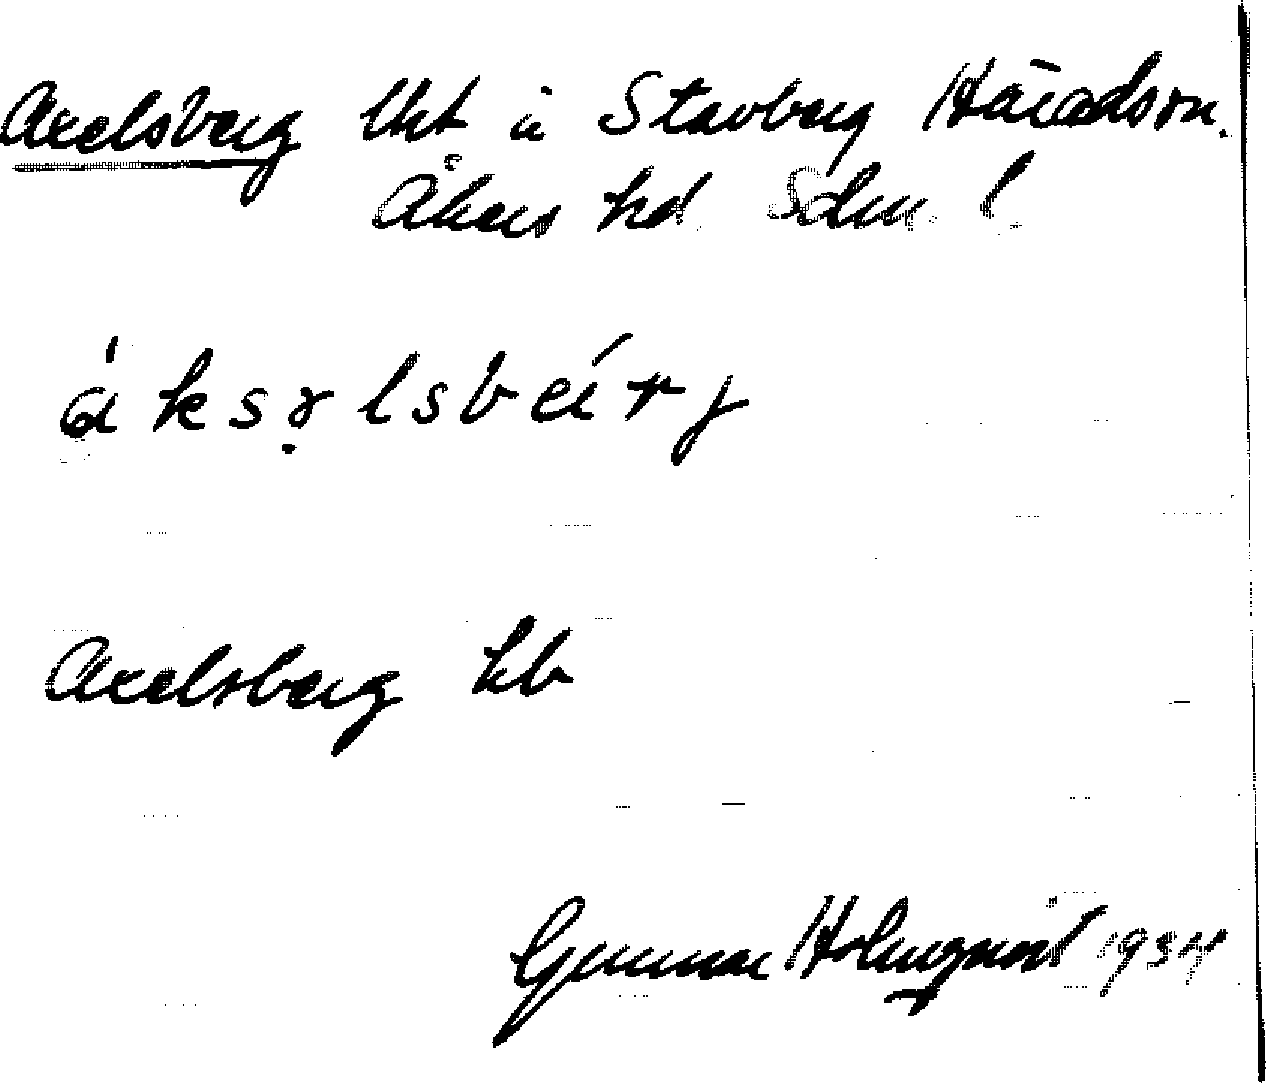 Axelsberg lht i Stavberg Häradsön.
Åkers hd Sdm. l.
áksəlsbærj
Axelsberg hb
Gunnar Holmquist 1934